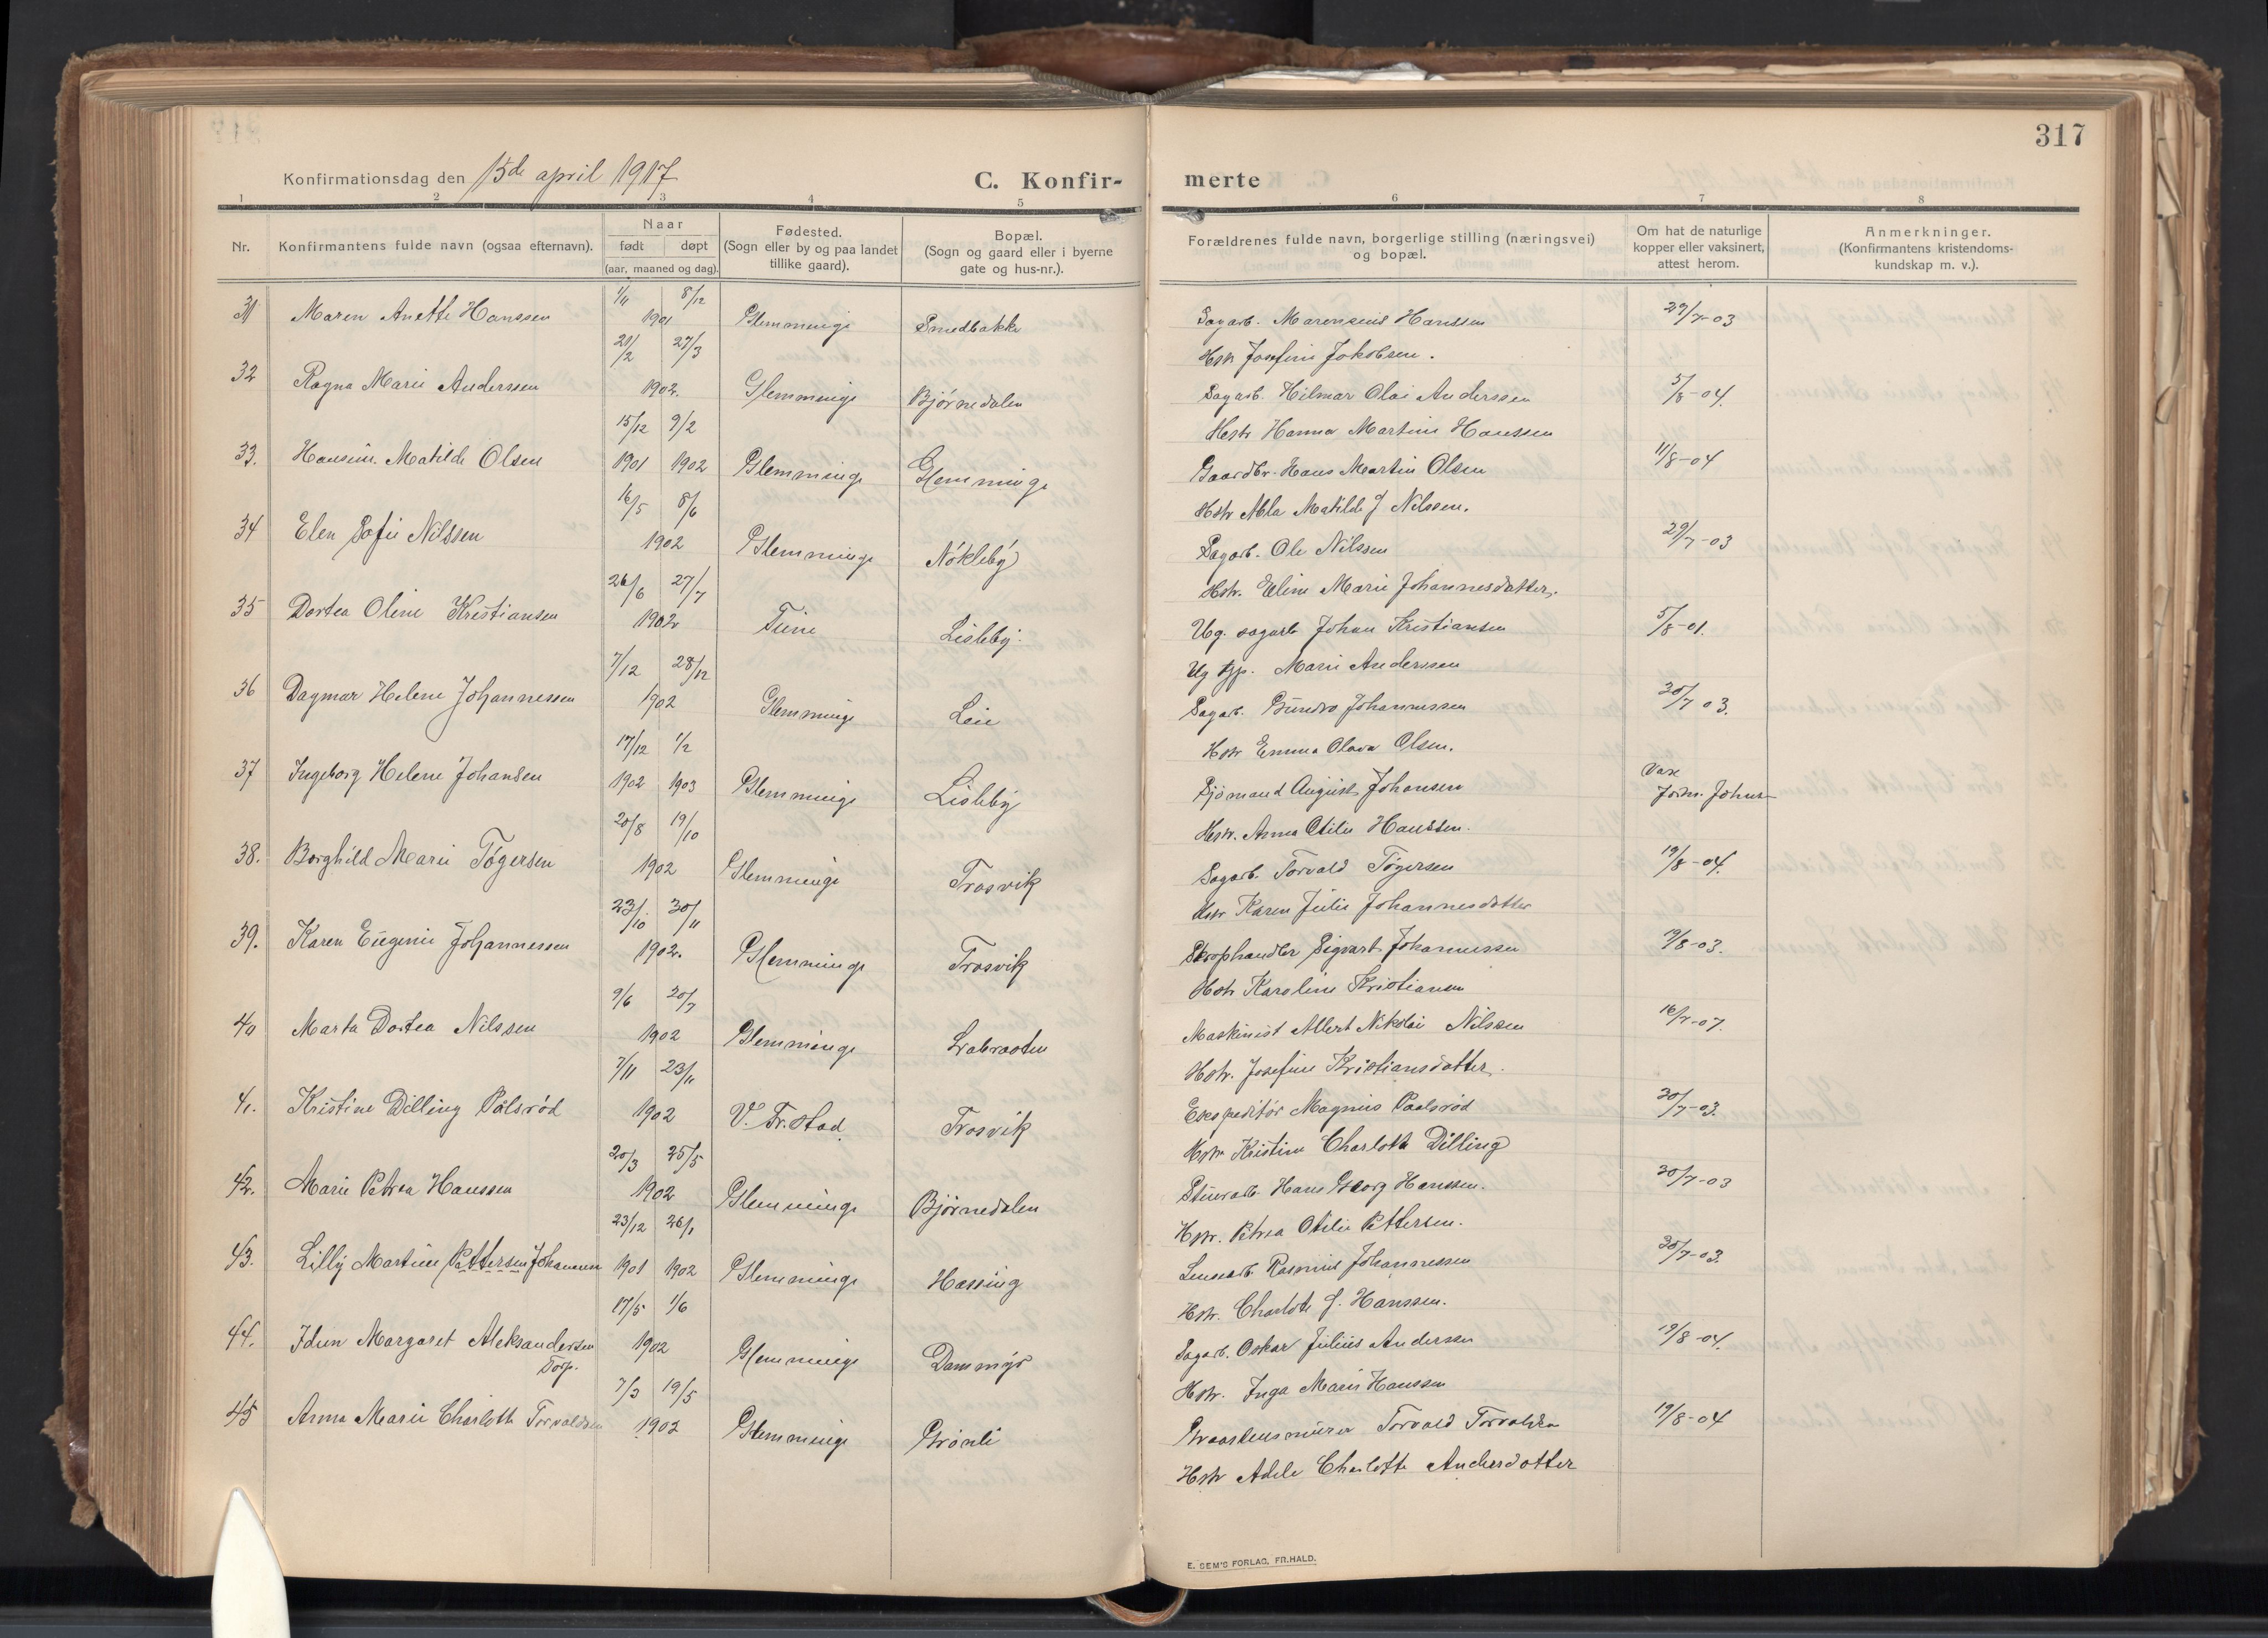 317
Konfirmationsdag den 15de april 1917
C. Konfir- merte
1 2 3 4 5 6 7 8
Nr. Konfirmantens fulde navn (ogsaa efternavn). Naar født døpt (aar, maaned og dag). Fødested. (Sogn eller by og paa landet tillike gaard). Bopæl. (Sogn og gaard eller i byerne gate og hus-nr.). Forældrenes fulde navn, borgerlige stilling (næringsvei) og bopæl. Om hat de naturlige kopper eller vaksinert, attest herom. Anmerkninger. (Konfirmantens kristendoms-kundskap m. v.).
31 Maren Anette Hanssen 1/11 8/12 1901 Glemminge Smedbakke Sagarb. Marensius Hanssen 29/7-03
Hstr Josefine Jakobsen.
32 Ragna Marie Anderssen 21/2 27/3 1902. Glemminge Bjørnedalen Sagarb. Hilmar Olai Anderssen 5/8-04.
Hstr Hanna Martine Hanssen
33. Hansine Matilde Olsen 15/12 1901 9/2 1902 Glemminge Glemminge Gaardbr. Hans Martin Olsen 11/8-04
Hstr Alba Matilde J Nilssen.
34 Elen Sofie Nilssen 16/5 8/6 1902 Glemminge Nökleby Sagarb. Ole Nilssen 29/7-03
Hstr. Eline Marie Johannesdatter.
35 Dortea Oline Kristiansen 26/6 27/7 1902 Tune Lisleby Ug. sagarb Johan Kristiansen 5/8-01.
Ug tjp. Marie Anderssen
36 Dagmar Helene Johannessen 7/12 28/12 1902 Glemminge Leie Sagarb. Gundro Johannessen 30/7 03.
Hstr Emma Olava Olsen.
37 Ingeborg Helene Johansen 17/12 1902 1/2 1903 Glemminge Lisleby Sjömand August Johansen Vax
Hstr. Anna Otilie Hanssen.
38. Borghild Marie Tøgersen 20/8 19/10 1902 Glemminge Trosvik Sagarb. Torvald Tøgersen 19/8-04.
Hstr Karen Julie Johannesdatter
39. Karen Eugenie Johannessen 23/10 30/11 1902. Glemminge Trosvik Skrophandler Sigvart Johannessen 19/8-03.
Hstr Karoline Kristiansen
40 Marta Dortea Nilssen 9/6 20/7 1902 Glemminge Labraaten Maskinist Albert Nikolai Nilssen 16/7-07.
Hstr. Josefine Kristiansdatter.
41. Kristine Dilling Pålsrød 7/11 23/11 1902 V. Fr.stad Trosvik Ekspeditör Magnus Paalsrød 30/7-03.
Hstr Kristine Charlotte Dilling
42. Marie Petrea Hanssen 20/3 25/5 1902 Glemminge Bjørnedalen Stuerarb Hans Georg Hanssen. 30/7-03
Hstr. Petrea Otilie Pettersen.
43. Lilly Martine Pettersen Johannessen 23/12 1901 26/1 1902 Glemminge Hassing Lensearb Rasmus Johannessen 30/7-03.
Hstr. Charlotte J. Hanssen.
44. Idun Margaret Aleksandersen Torp. 17/5 1/6 1902 Glemminge Dammyr Sagarb. Oskar Julius Anderssen 19/8-04.
Hstr. Inga Marie Hanssen
45 Anna Marie Charlotte Torvaldsen 7/3 19/5 1902 Glemminge Grönli Graastensmurer Torvald Torvaldsen 19/8-04
Hstr Adele Charlotte Andersdatter
E. SEM'S FORLAG, FR.HALD.